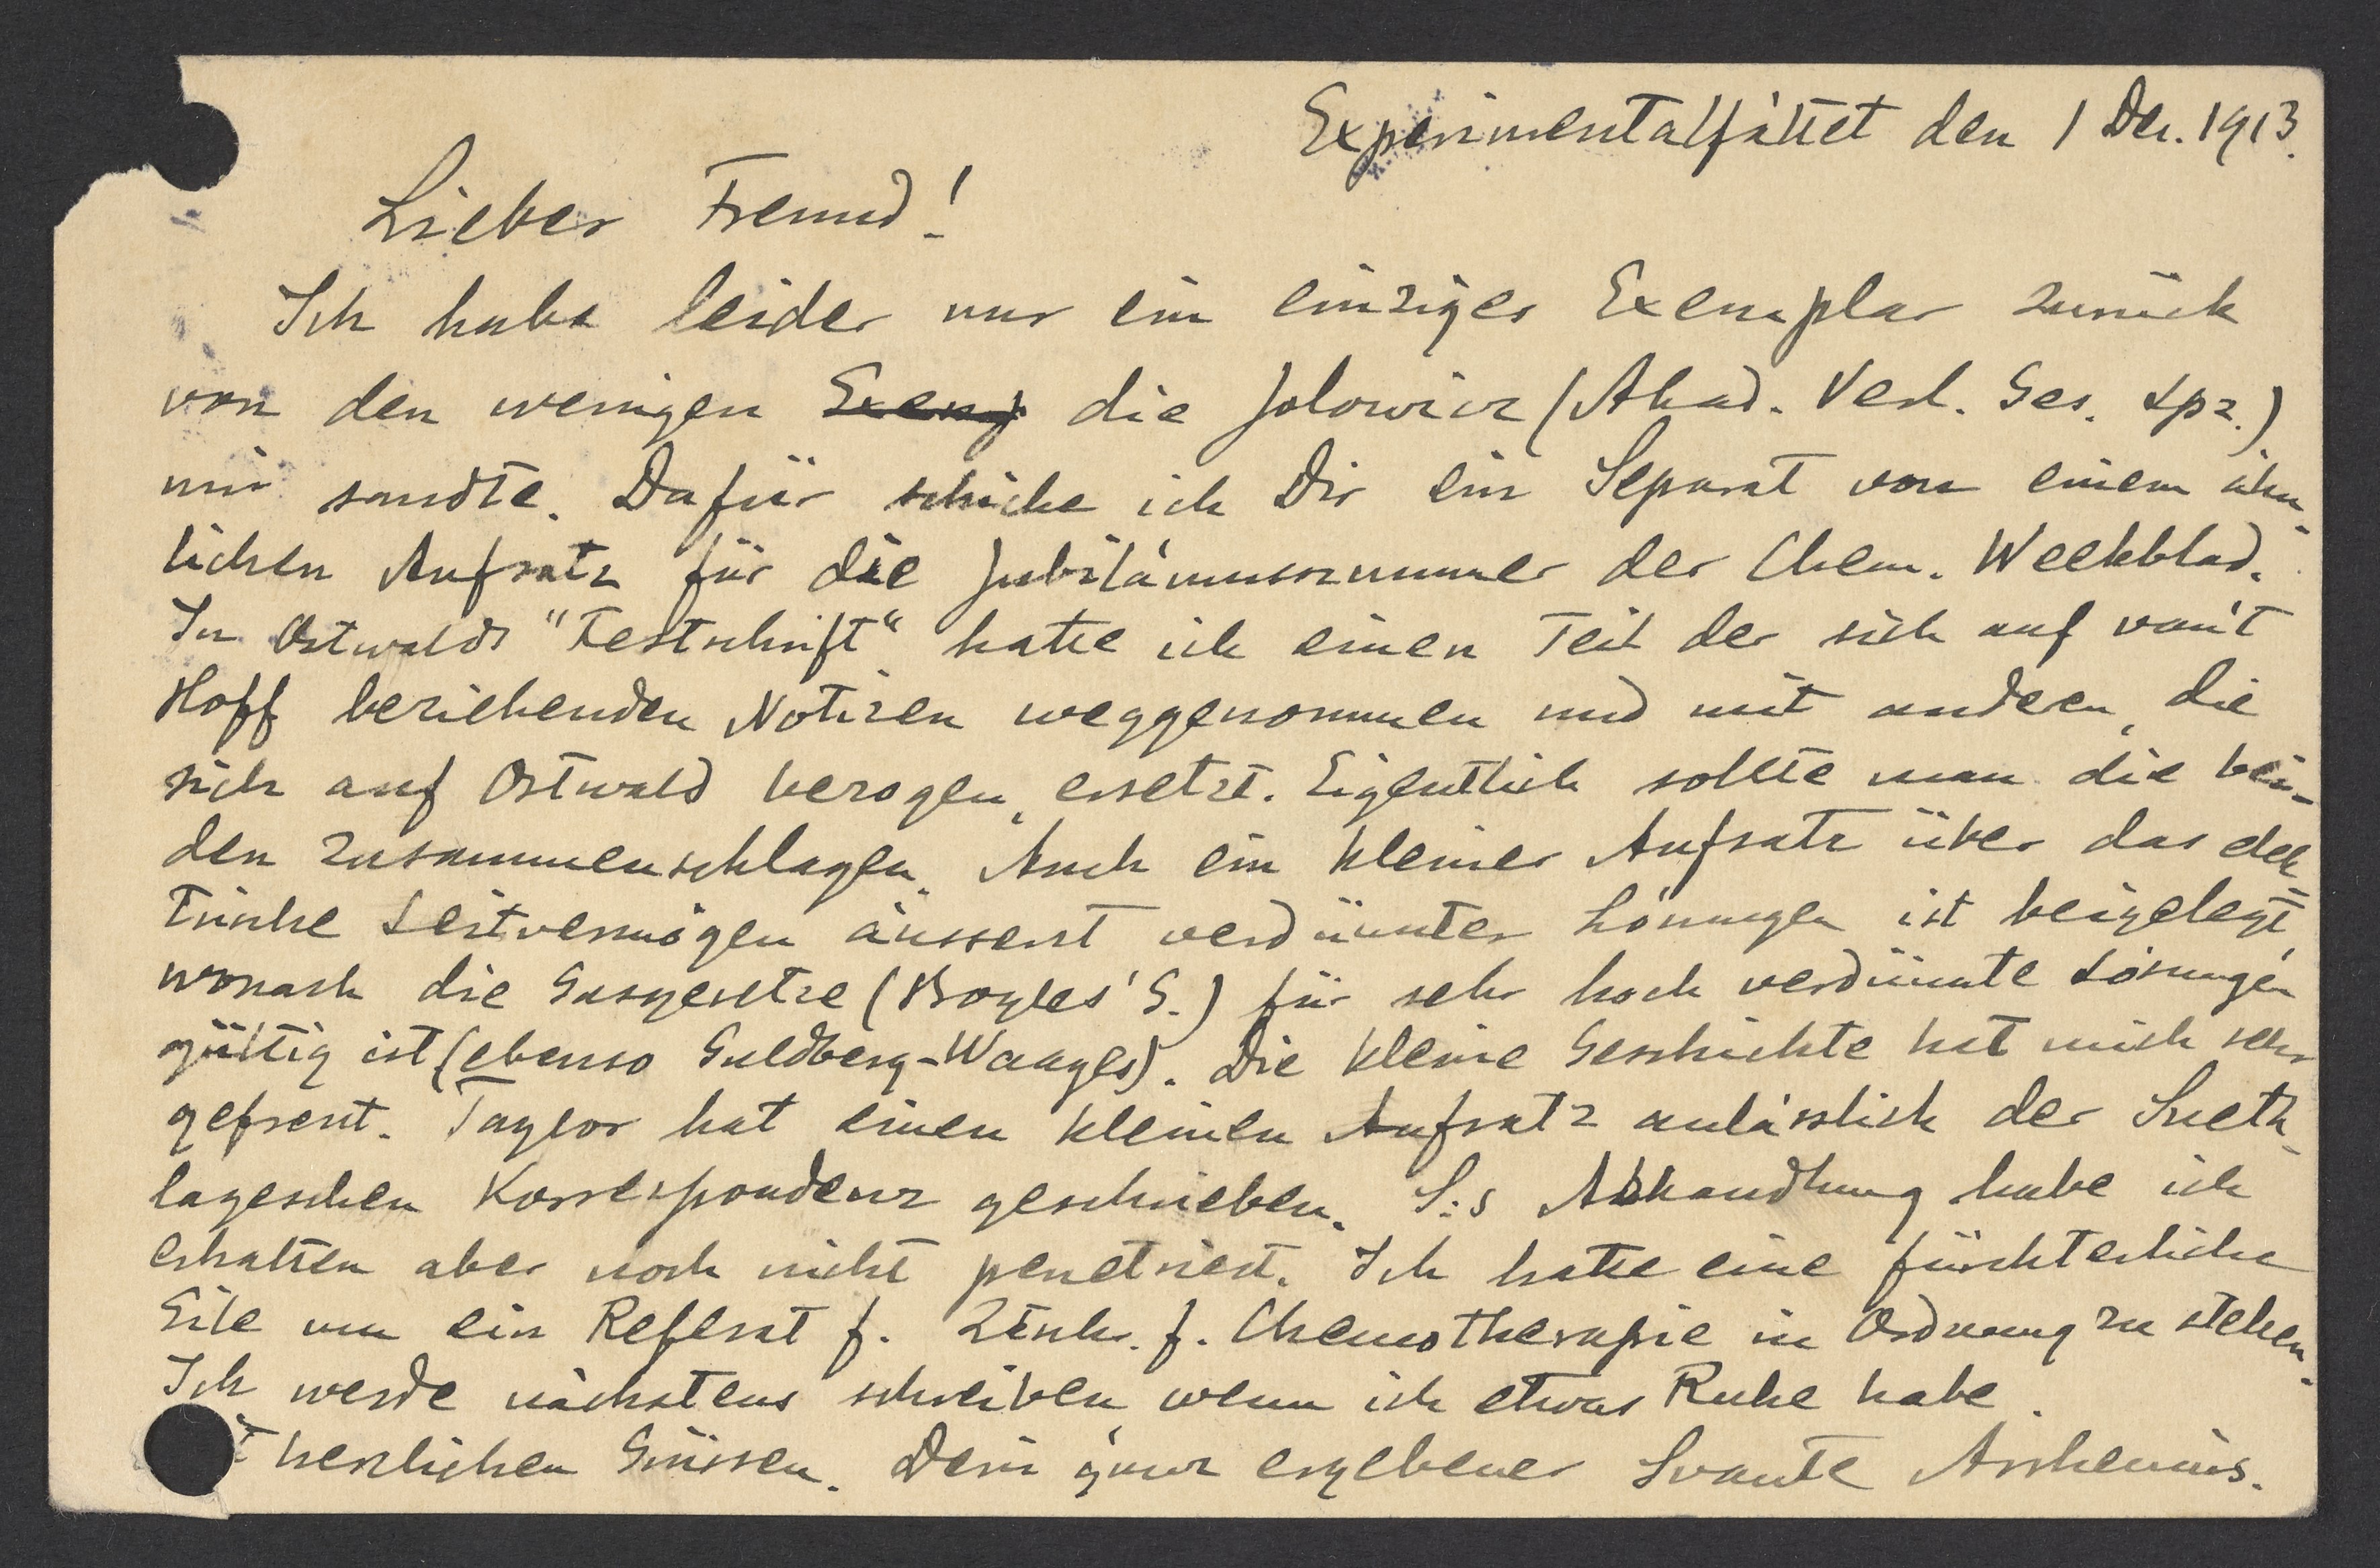 Experimentalfältet den 1 Dec. 1913.
Lieber Freund!
Ich habe leider nur ein einziges Exemplar zurück
von den wenigen Exemp die Jolowicz (Akad. Verl. Ges. Lpz.)
mir sandte. Dafür schicke ich Dir ein Separat von einem ähn-
lichen Aufsatz für die Jubiläumsnummer der Chem. Weekblad.
In Ostwalds "Festschrift" hatte ich einen Teil der sich auf van't
Hoff beziehenden Notizen weggenommen und mit anderen, die
sich auf Ostwald bezogen, ersetzt. Eigentlich sollte man die bei-
den zusammenschlagen. Auch ein kleiner Aufsatz über das elek-
trische Leitvermögen äusserst verdünnter Lösungen ist beigelegt,
wonach die Gasgesetze (Boyles' G.) für sehr hoch verdünnte Lösungen
gültig ist (ebenso Guldberg-Waages). Die kleine Geschichte hat mich sehr
gefreut. Taylor hat einen kleinen Aufsatz anlässlich der Sneth-
lageschen Korrespondenz geschrieben. S:s Abhandlung habe ich
erhalten aber noch nicht penetriert. Ich hatte eine fürchterliche
Eile um ein Referat f. Ztschr. f. Chemotherapie in Ordnung zu stellen.
Ich werde nächstens schreiben, wenn ich etwas Ruhe habe.
t herzlichen Grüssen. Dein ganz ergebener Svante Arrhenius.